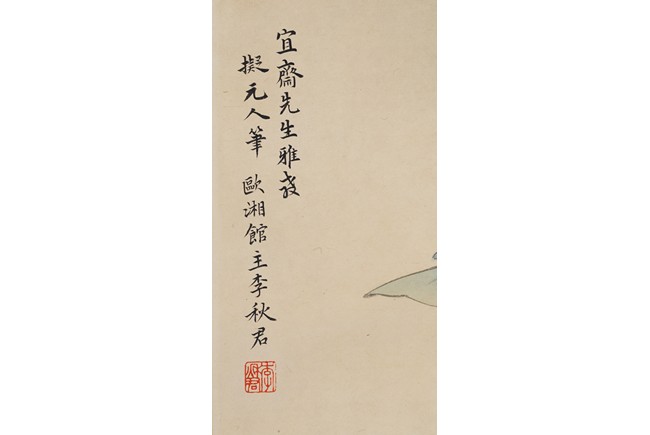 宜齋先生雅教
擬元人筆 歐湘館主李秋君
李秋君